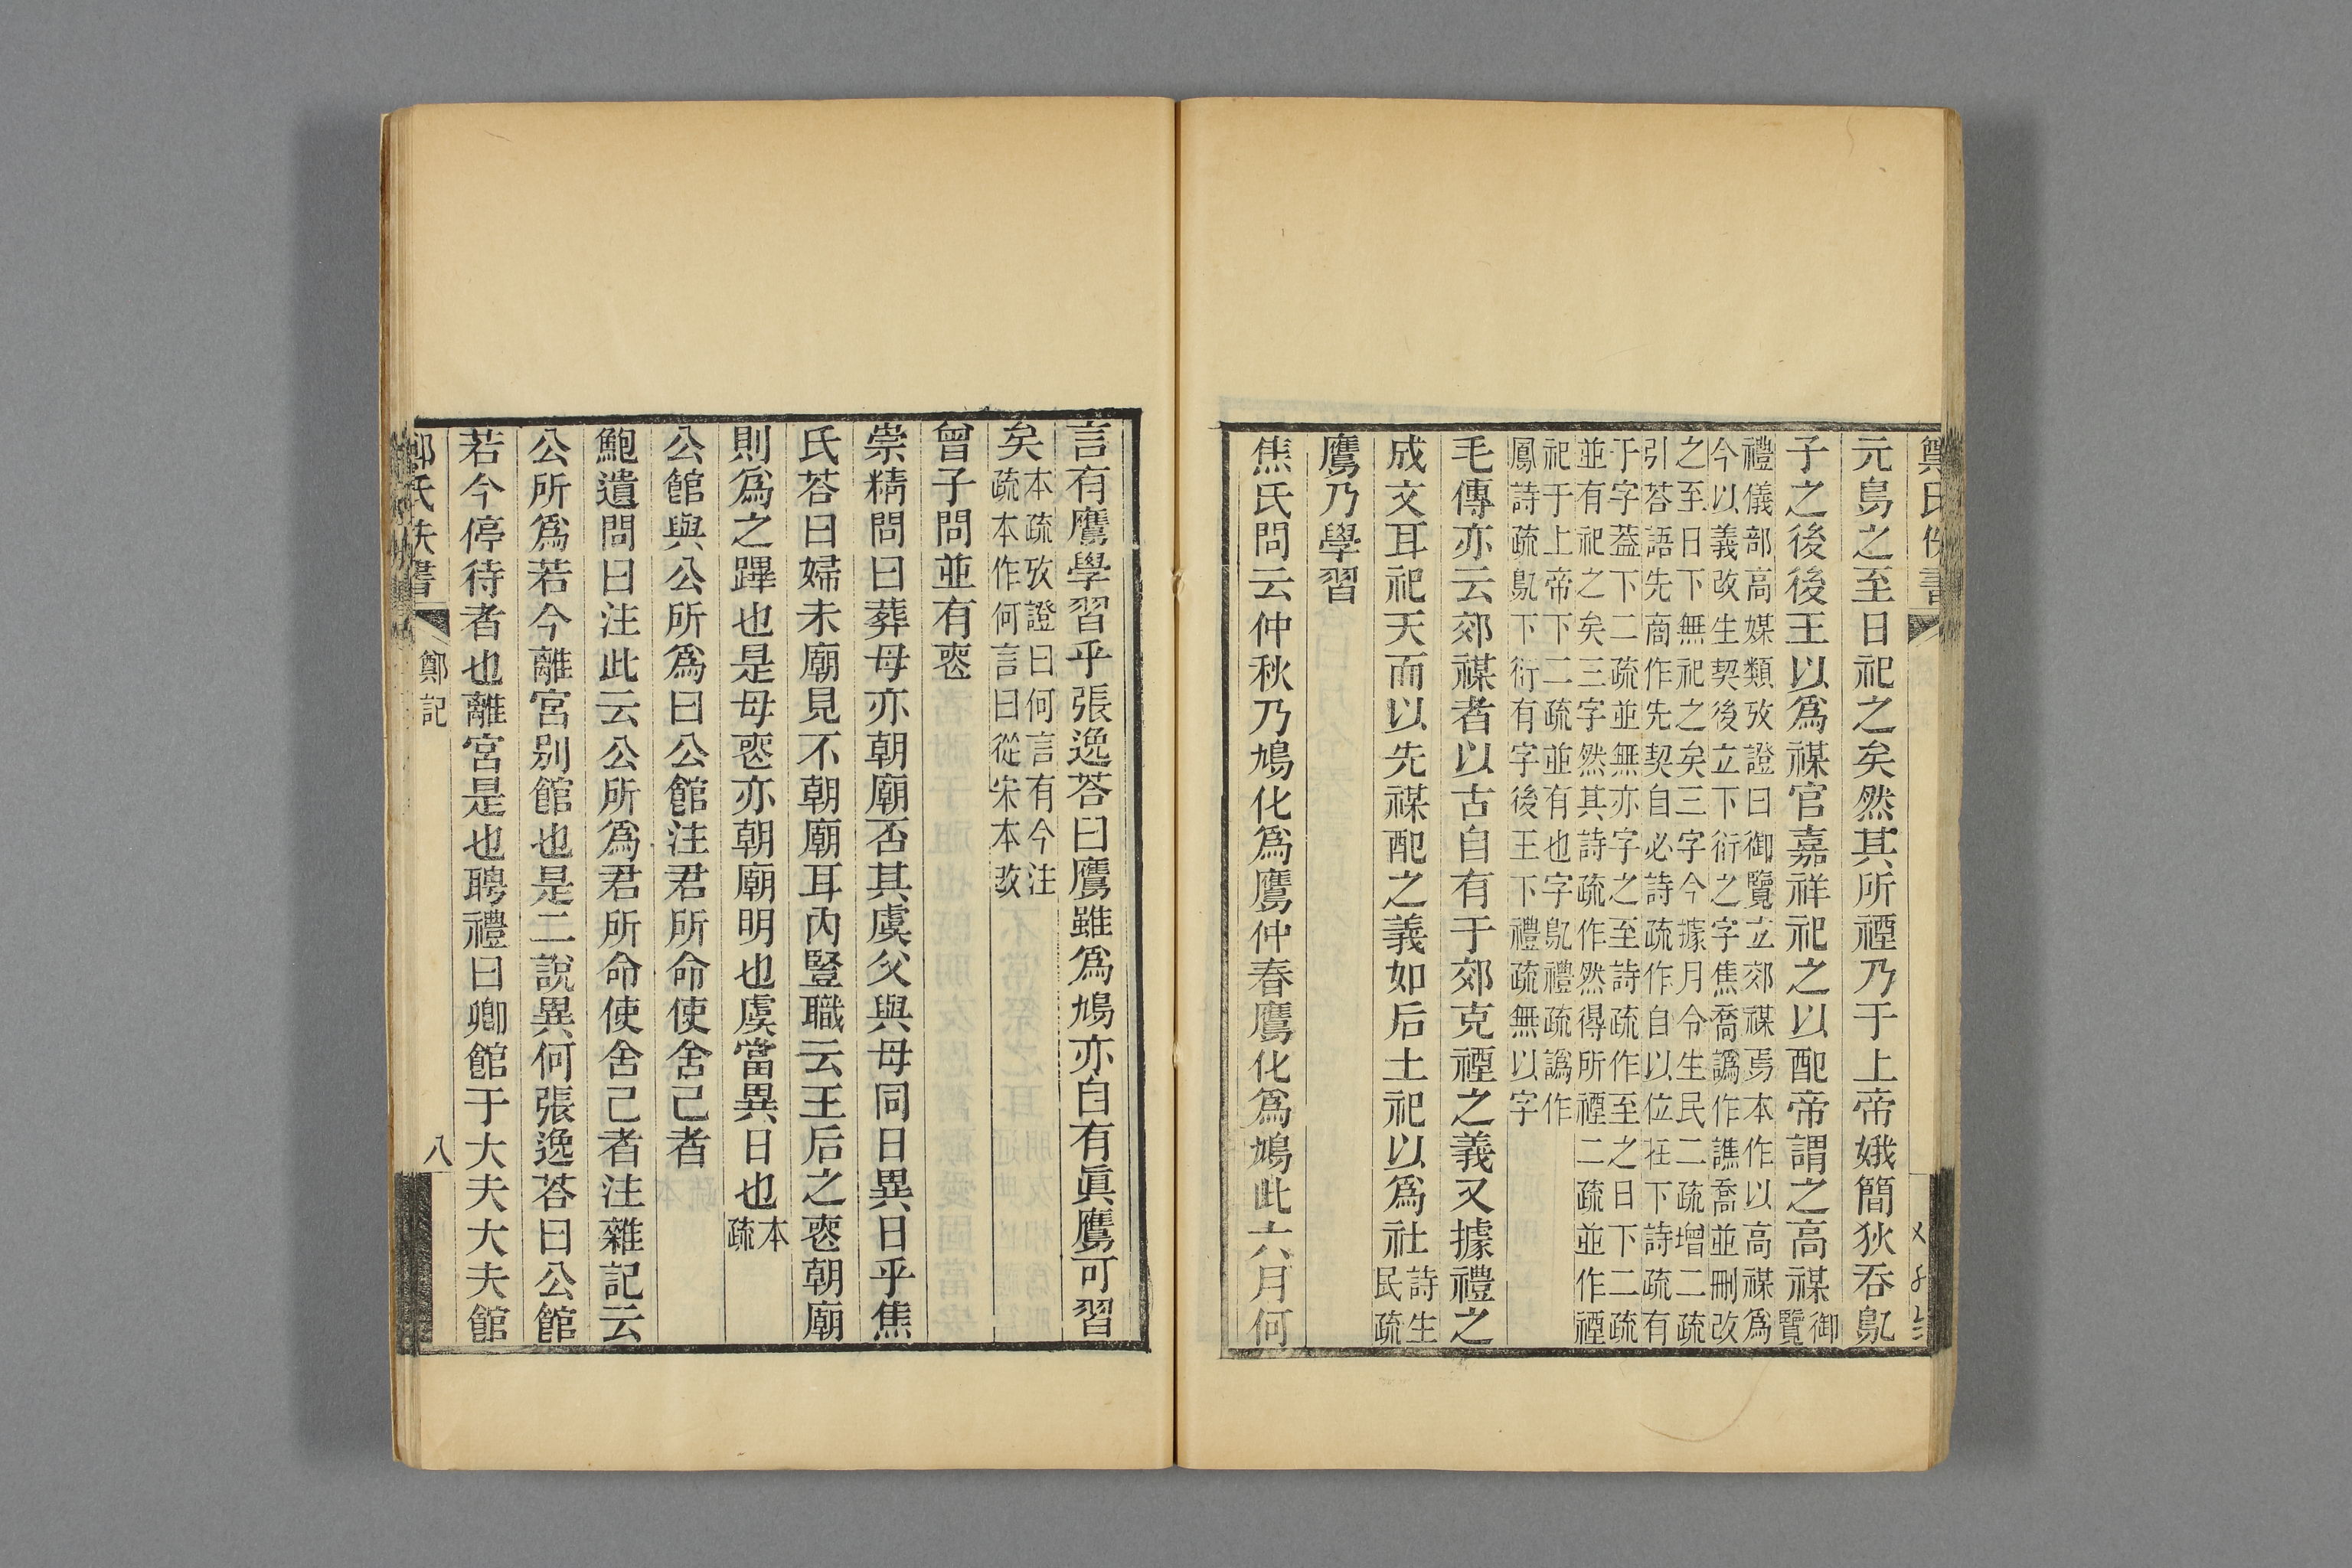 鄭氏佚書
元鳥之至日祀之矣然其所禋乃于上帝娥簡狄吞鳦
子之後後王以爲禖官嘉祥祀之以配帝謂之高禖御覽
禮儀部高媒類攷證曰御覽立郊禖焉本作以高禖爲
今以義改生契後立下衍之字焦喬譌作譙喬並刪改
之至日下無祀之矣三字今據月令生民二疏增二疏
引荅語先商作先契自必詩疏作自以位在下詩疏有
于字葢下二疏並無亦字之至詩疏作至之日下二疏
並有祀之矣三字然其詩疏作然得所禋二疏並作禋
祀于上帝下二疏並有也字鳦禮疏譌作
鳳詩疏鳦下衍有字後王下禮疏無以字
毛傳亦云郊禖者以古自有于郊克禋之義又據禮之
成文耳祀天而以先禖配之義如后土祀以爲社詩生民疏
鷹乃學習
焦氏問云仲秋乃鳩化爲鷹仲春鷹化爲鳩此六月何
言有鷹學習乎張逸荅曰鷹雖爲鳩亦自有眞鷹可習
矣本疏攷證曰何言有今注疏本作何言曰從宋本改
曾子問並有喪
崇精問曰葬母亦朝廟否其虞父與母同日異日乎焦
氏荅曰婦未廟見不朝廟耳內豎職云王后之喪朝廟
則爲之蹕也是母喪亦朝廟明也虞當異日也本疏
公館與公所爲曰公館注君所命使舍己者
鮑遺問曰注此云公所爲君所命使舍己者注雜記云
公所爲若今離宮別館也是二說異何張逸荅曰公館
若今停待者也離宮是也聘禮曰卿館于大夫大夫館
鄭氏佚書
鄭記
八